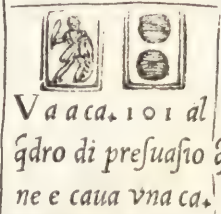 Va a ca. 101 al
q̃dro di preſuaſio
ne e caua vna ca.